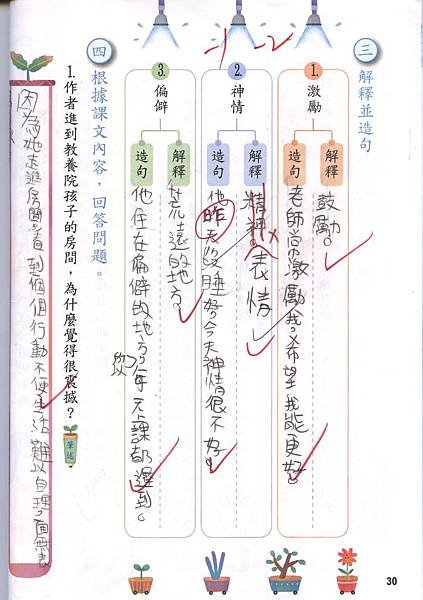 三 解釋並造句
1. 激勵
解釋
鼓勵。
造句
老師常激勵我,希望我能更好。
2. 神情
-1 -2
解釋
精神。表情
造句
他昨天沒睡好,今天神情很不好。
3. 偏僻
解釋
荒遠的地方。
造句
他住在偏僻的地方,每天上課都遲到。
四 根據課文內容,回答問題。
1.作者進到教養院孩子的房間,為什麼覺得很震撼?
筆述
因為她走進房間,看到個個行動不便生活難以自理。面無表
30